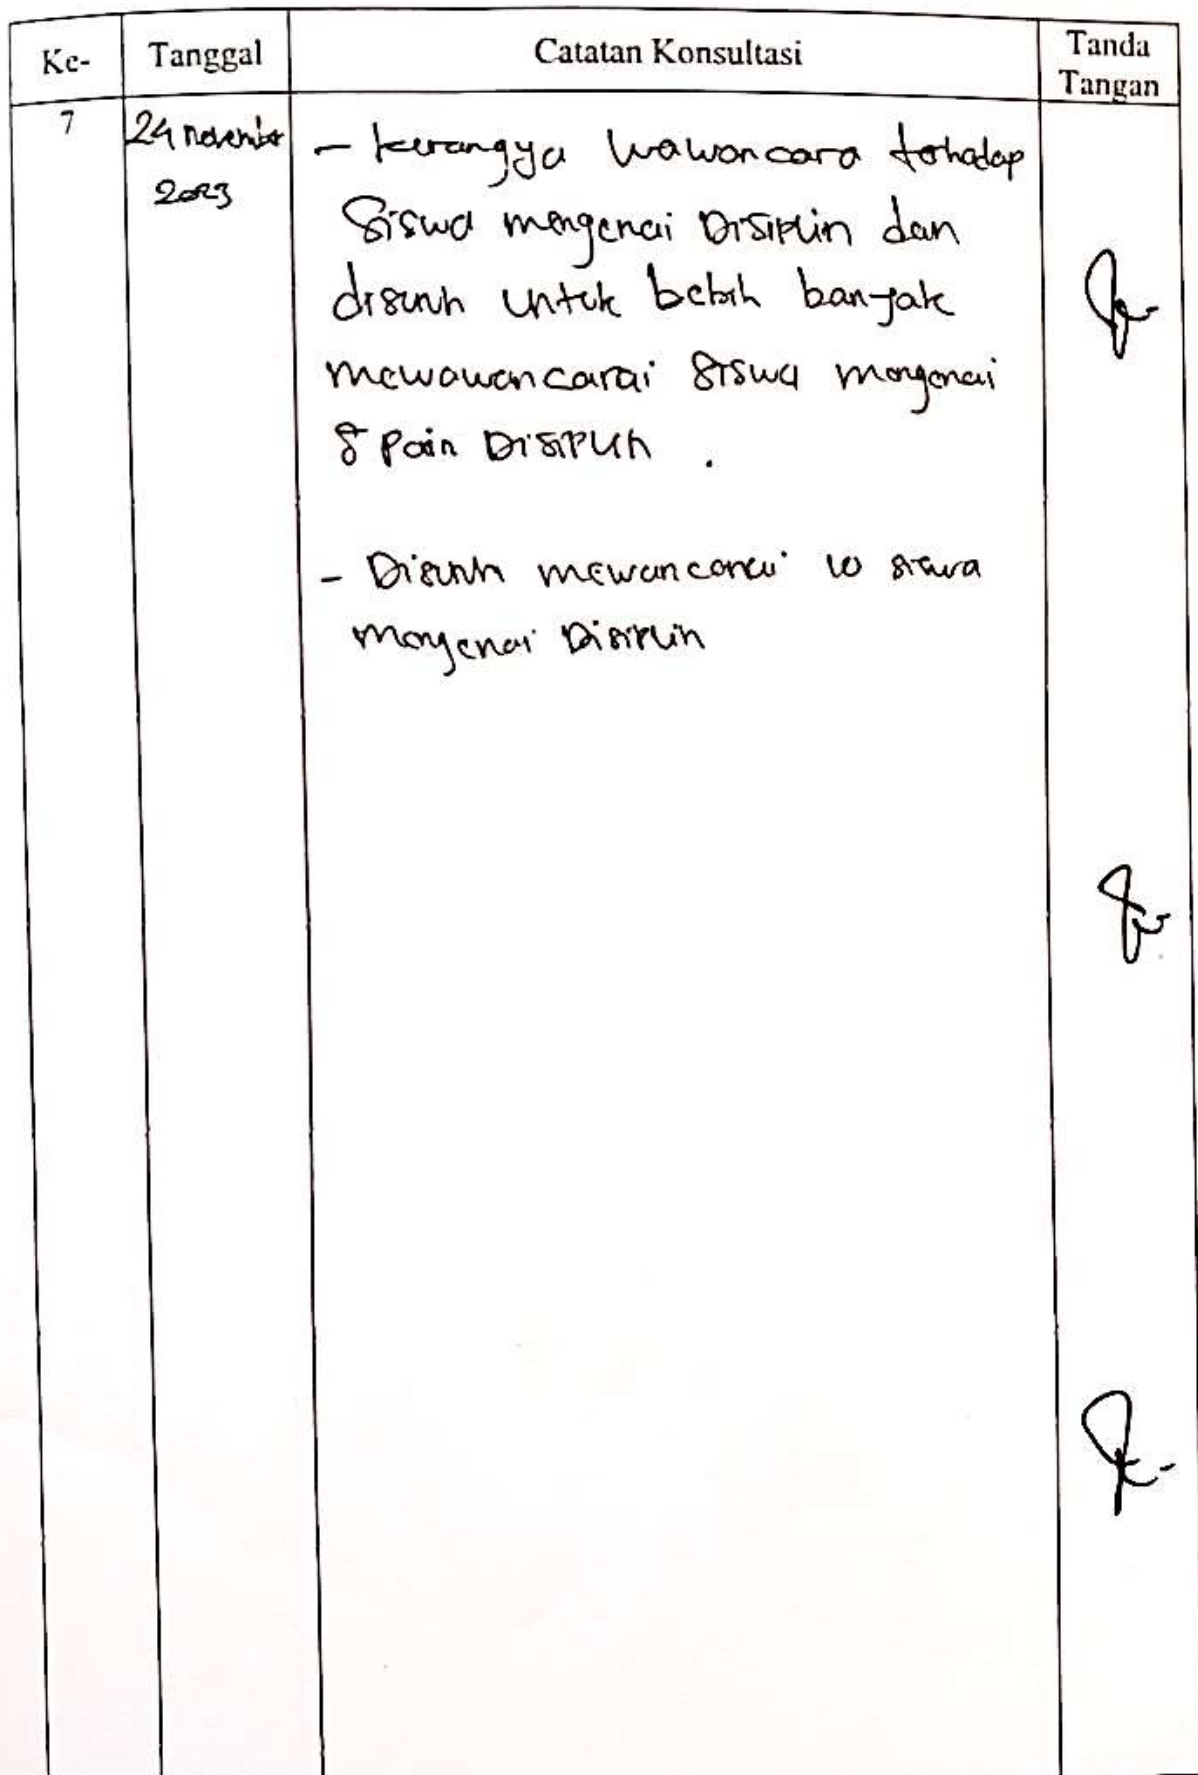 Ke- Tanggal Catatan Konsultasi Tanda Tangan
7 24 november 2023
- kurangya wawancara terhadap
siswa mengenai Disiplin dan
disuruh untuk lebih banyak
mewawancarai siswa mengenai
8 Poin Disiplin .
- Disuruh mewancarai 10 siswa
mengenai Disiplin